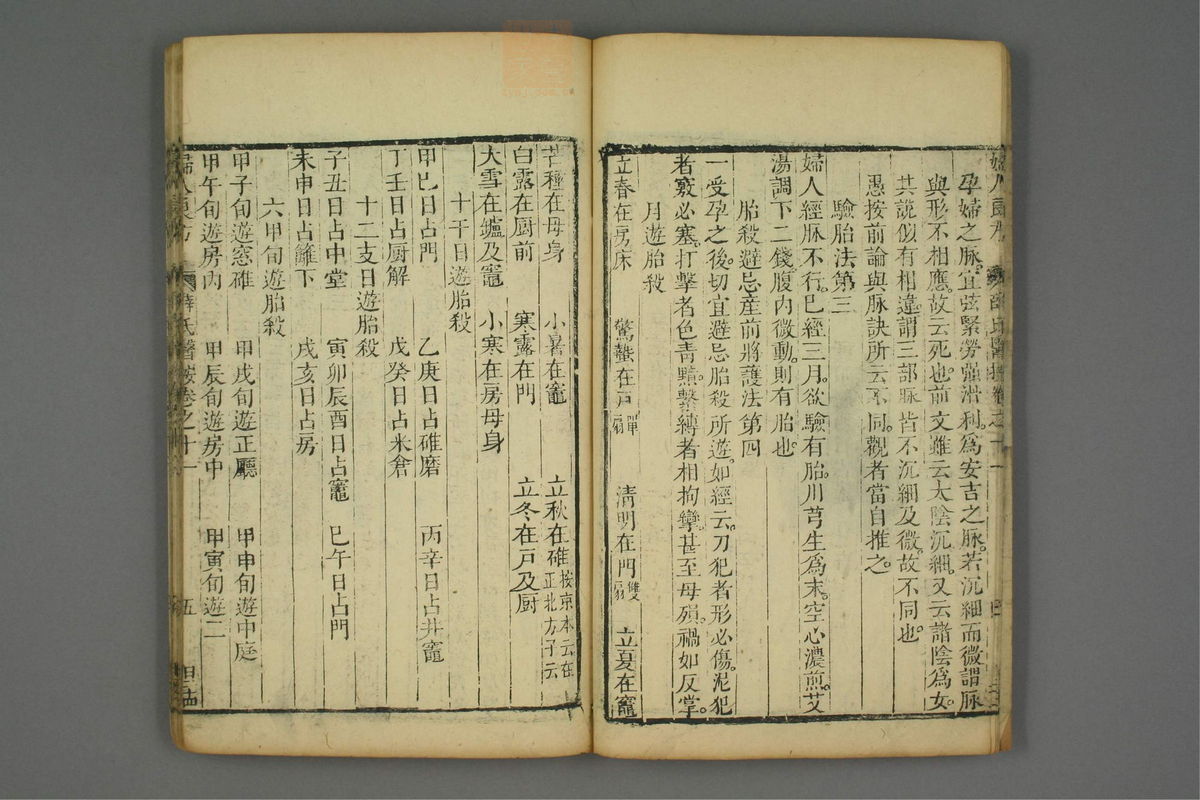 孕婦之脉宜弦緊勞强滑利爲安吉之脉若沉細而微謂脉
與形不相應故云死也前文雖云太陰沉細又云諸陰爲女
其說似有相違謂三部脉皆不沉細及微故不同也
愚按前論與脉訣所云不同觀者當自推之
驗胎法第三
婦人經脉不行已經三月欲驗有胎川芎生爲末空心濃煎艾
湯調下二錢腹内微動則有胎也
胎殺避忌産前將護法第四
一受孕之後切宜避忌胎殺所遊如經云刀犯者形必傷泥犯
者竅必塞打擊者色青黯繫縛者相拘攣甚至母殞禍如反掌
月遊胎殺
立春在房床 驚蟄在戸單扇 清明在門雙扇 立夏在竈
芒種在母身 小暑在竈 立秋在碓按京本云在正北方子云
白露在厨前 寒露在門 立冬在戸及厨
大雪在爐及竈 小寒在房母身
十干日遊胎殺
甲巳日占門 乙庚日占碓磨 丙辛日占井竈
丁壬日占厨解 戊癸日占米倉
十二支日遊胎殺
子丑日占中堂 寅卯辰酉日占竈 巳午日占門
未申日占籬下 戌亥日占房
六甲旬遊胎殺
甲子旬遊窓碓 甲戌旬遊正廳 甲申旬遊中庭
甲午旬遊房内 甲辰旬遊房中 甲寅旬遊二
婦人良方 薛氏醫按卷之十一 五